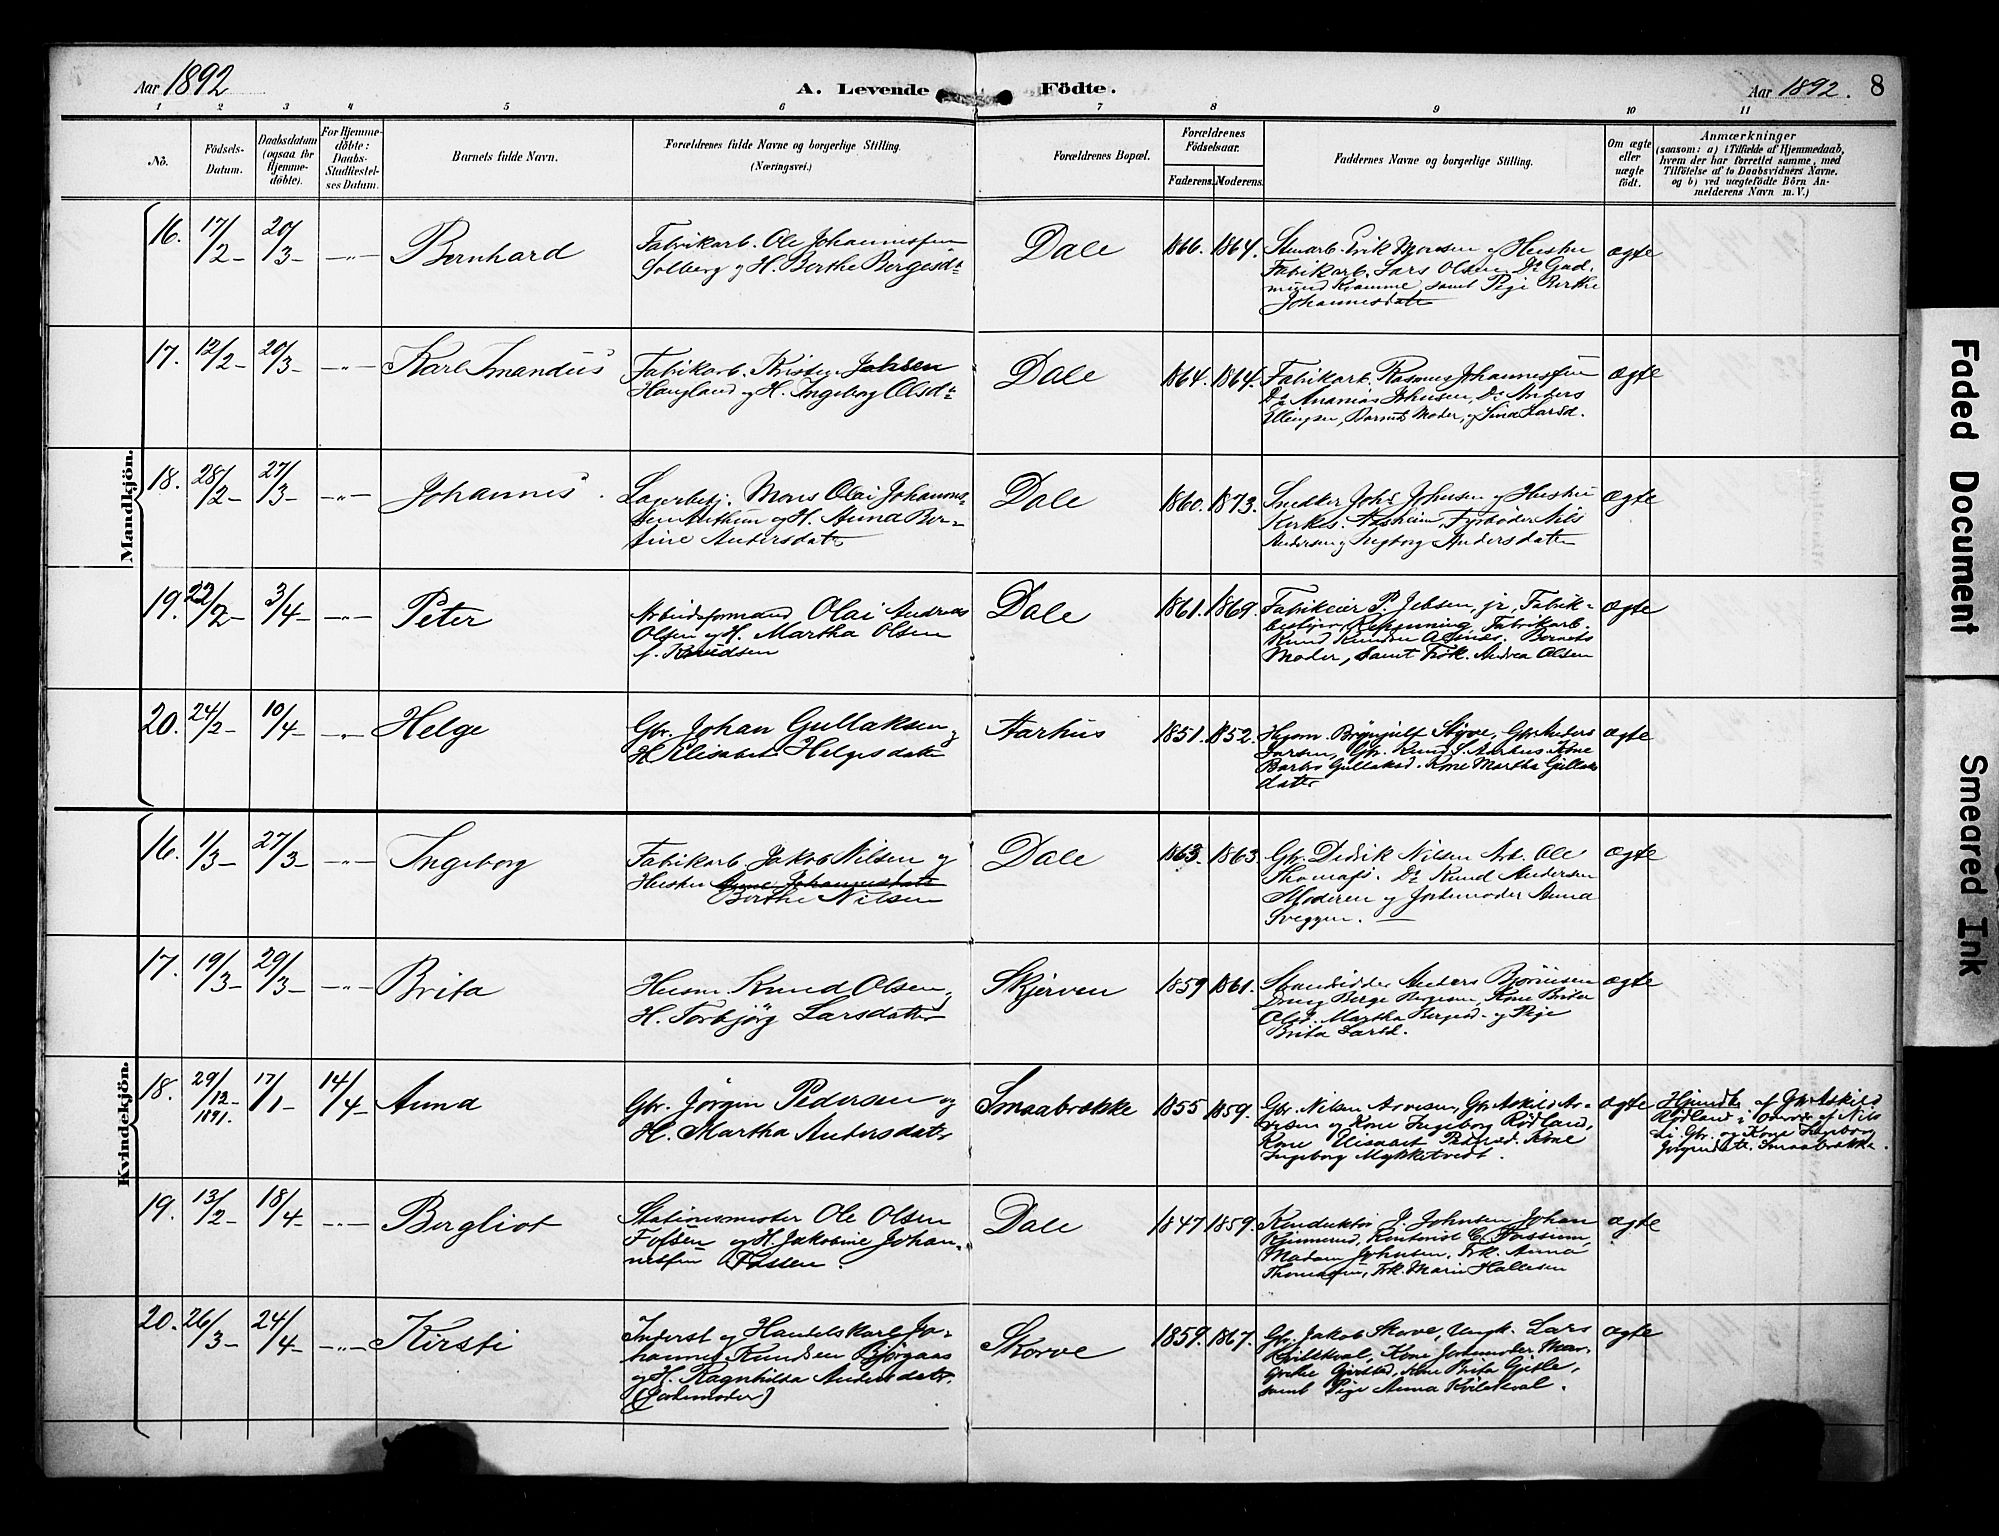 Aar 1892
A. Levende Födte.
Aar 1892. 8
1 2 3 4 5 6 7 8 9 10 11
No.
Födsels-
Datum.
Daabsdatum
(ogsaa for
Hjemme-
döbte).
For Hjemme-
döbte:
Daabs-
Stadfæstel-
ses Datum.
Barnets fulde Navn.
Forældrenes fulde Navne og borgerlige Stilling.
(Næringsvei.)
Forældrenes Bopæl.
Forældrenes
Födselsaar.
Faderens. Moderens.
Faddernes Navne og borgerlige Stilling.
Om ægte
eller
uægte
födt.
Anmærkninger
(saasom: a) i Tilfælde af Hjemmedaab,
hvem der har forrettet samme, med
Tilföielse af to Daabsvidners Navne,
og b) ved uægtefödte Börn An-
melderens Navn m. V.)
Mandkjön.
16. 17/2 20/3 -"- Bernhard
Fabrikarb. Ole Johannessen
Solberg og H. Berthe Bergesdr
Dale 1866. 1864.
Stenarb. Erik Monsen og Hustru
Fabrikarb. Lars Olsen Do Gud-
mund Kramme, samt Pige Berthe
Johannesdatr
ægte
17. 12/2 20/3 -"- Karl Smandus
Fabrikarb. Kristen Johsen
Haugland og H. Ingeborg Olsdr
Dale 1864. 1864.
Fabrikarb. Rasmus Johannessen
Do Ananias Johnsen, Do Anders
Ellingsen, Barnets Moder, og Sina Larsd.
ægte
18. 28/2 27/3 -"- Johannes
Mons Olai Johannes-
sen og H. Anna Ber-
tine Andersdatr
Dale 1860. 1873.
Snedker John Johnsen og Hustru
Kirkes. Fyrbøder Nils
Andersen og Ingborg Andersdatr
ægte
19. 22/2 3/4 -"- Peter
Arbeidsformand Olai Andreas
Olsen og H. Martha Olsen
f. Knudsen
Dale 1861. 1869.
Fabrikeier P. Jebsen, jr, Fabrik-
bestyrer Fabrikarb.
Knud Knudsen Barnets
Moder, samt Frøk. Andrea Olsen
ægte
20. 24/2 10/4 -"- Helge
Gbr. Johan Gullaksen og
H. Elisabet Helgesdatr
Aarhus 1851. 1852.
Brynjulf Styve, Gbr Anders
Larsen, Gbr. Knud S. Aarhus Kone
Barbro Gullaksd. Kone Martha Gullaks
datr
ægte
Kvindekjön.
16. 1/3 27/3 -"- Ingeborg
Fabrikarb. Jakob Nilsen og
Hustru Anne Johannesdatr
Berthe Nilsen
Dale 1863. 1863.
Gbr. Didrik Nilsen Arb. Ole
Thomass. Do Knud Andersen
Moderen og Jordemoder Anna
Sveggen.
ægte
17. 19/3 29/3 -"- Brita
Husm. Knud Olsen,
H. Torbjörg Larsdatter
Skjerven 1859 1861.
Anders Bjørnsen
Dreng Berge Bergesen, Kone Brita
Olsd. Martha Bergesd. og Pige
Brita Larsd.
ægte
18. 29/12 1891. 17/1 14/4 Anna
Gbr. Jørgen Pedersen og
H. Martha Andersdatr
Smaabrække 1855 1859.
Gbr. Nilsen Arvesen, Gbr Askild Ar-
vesen og Kone Ingeborg Rödland,
Kone Elisabet Pedersd. Kone
Ingeborg Mykketvedt.
ægte
Hjemdbt. af Gbr Askild
Rödland i overv. af Nils
Gbr. og Kone Ingeborg
Jörgensdatr. Smaabrække.
19. 13/2 18/4 -"- Bergliot
Stationsmester Ole Olsen
Fossen og H. Jakobine Johan-
nessen Fossen.
Dale 1847 1859.
Konduktør J. Johnsen, Johan
Kontorist C. Fossum,
Madam Johnsen, Frk. Anna
Thomassen, Frk. Marie Hallesen
ægte
20. 26/3 24/4 -"- Kirsti
Inderst og Handelskarl Jo-
hannes Knudsen Bjørgaas
og H. Ragnhilda Andersdatr.
(Jordemoder)
Skorve 1859. 1867.
Gbr. Jakob Skorve, Ungk. Lars
Kvilekval, Kone Jordemoder Mar-
grethe Kone Brita Gjelle,
samt Pige Anna Kvilekval.
ægte
Faded Document
Smeared Ink